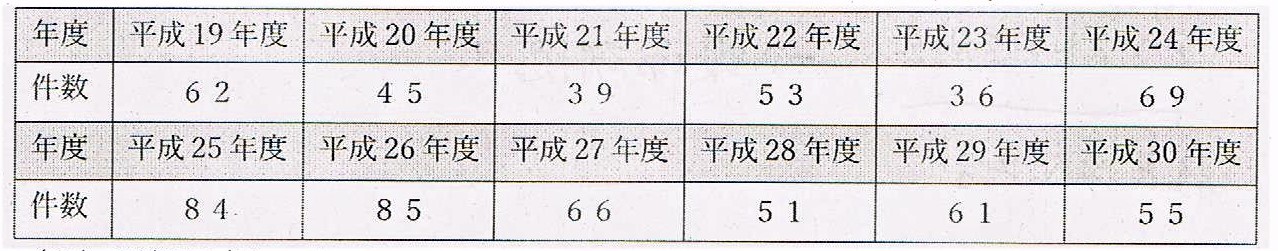 年度 平成19年度 平成20年度 平成21年度 平成22年度 平成23年度 平成24年度
件数 62 45 39 53 36 69
年度 平成25年度 平成26年度 平成27年度 平成28年度 平成29年度 平成30年度
件数 84 85 66 51 61 55